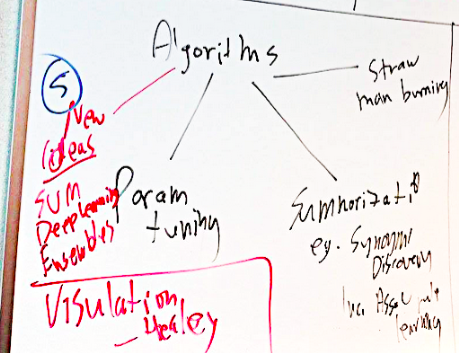 Algorithms
5
New
ideas
SUM
Deeplearning
Ensembles
Param
tuning
Straw
man burning
Sumhorizati
eg. Synonym
Discovery
learning
Visulation
- Healey